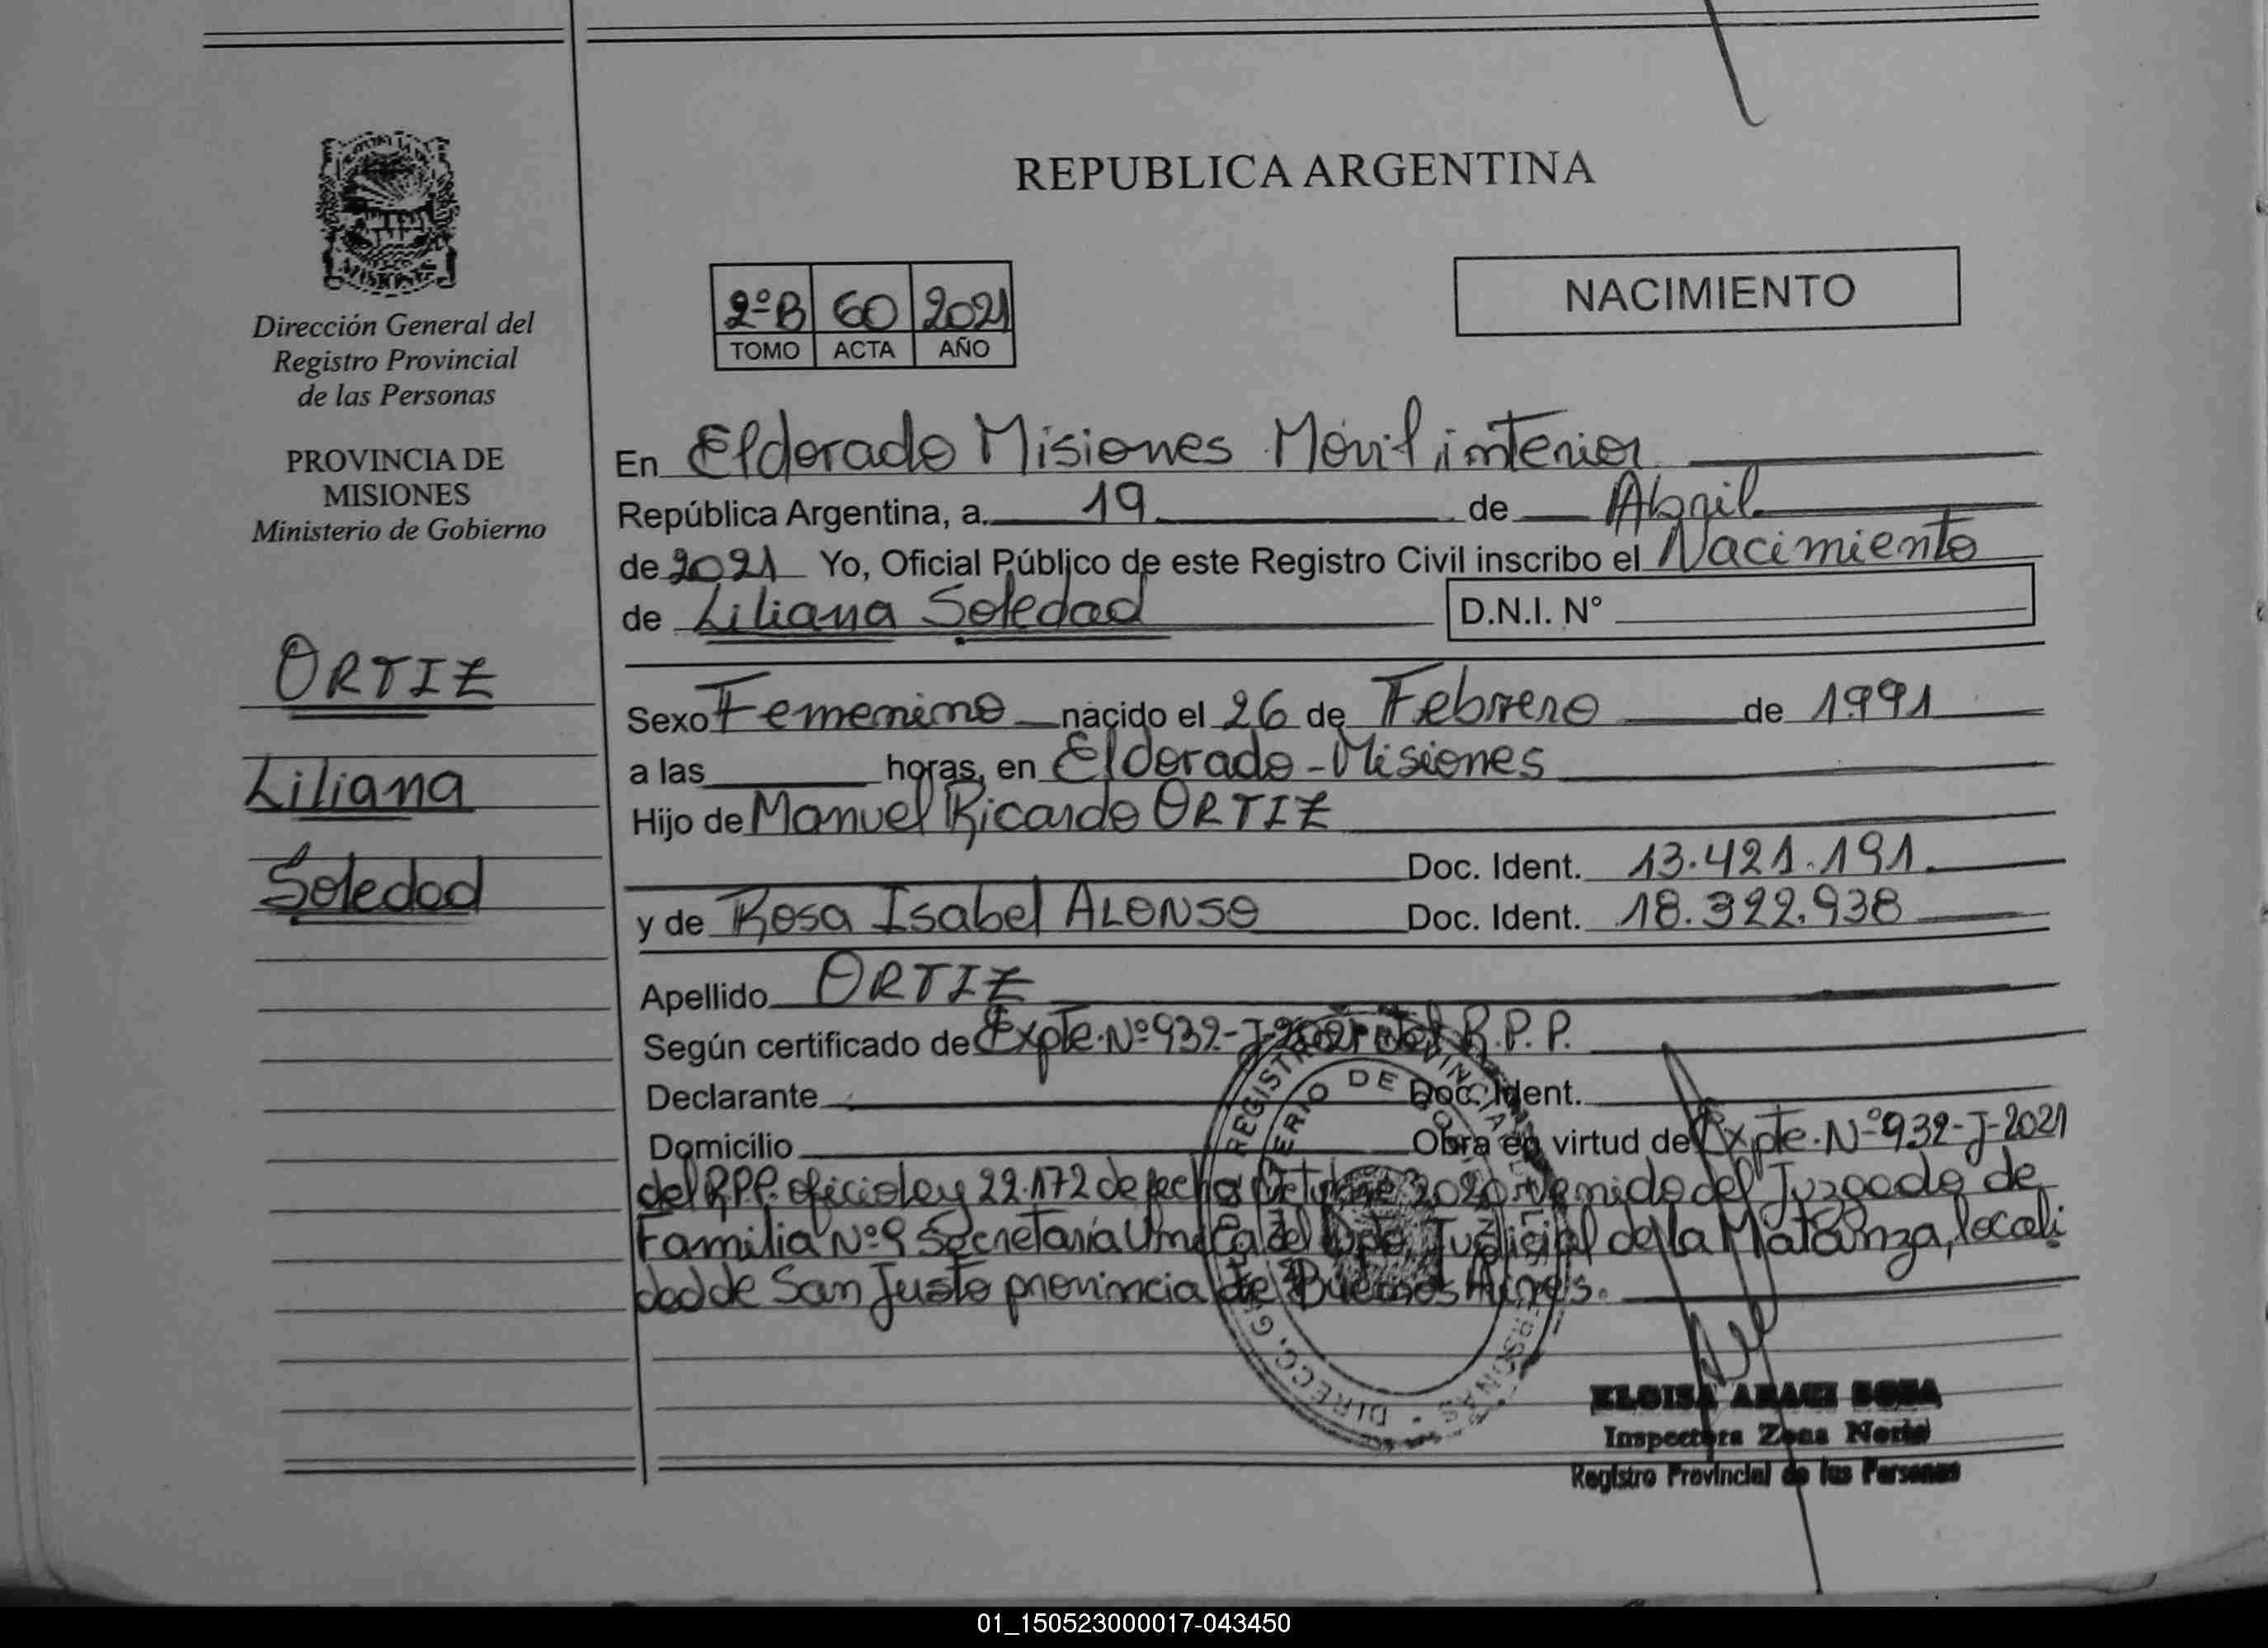 REPUBLICA ARGENTINA
NACIMIENTO
2ºB 60 2021
TOMO ACTA AÑO
Dirección General del
Registro Provincial
de las Personas
PROVINCIA DE
MISIONES
Ministerio de Gobierno
ORTIZ
Liliana
Soledad
En Eldorado Misiones Móvil interior
República Argentina, a 19 de Abril
de 2021 Yo, Oficial Público de este Registro Civil inscribo el Nacimiento
de Liliana Soledad D.N.I. N°
Sexo Femenino nacido el 26 de Febrero de 1991
a las horas, en Eldorado - Misiones
Hijo de Manuel Ricardo ORTIZ
Doc. Ident. 13.421.191
y de Rosa Isabel ALONSO Doc. Ident. 18.322.938
Apellido ORTIZ
Según certificado de Expte. Nº 932-J-2021 del R.P.P.
Declarante Doc. Ident.
Domicilio Obra en virtud de Expte. Nº 932-J-2021
del R.P.P. oficio ley 22.172 de fecha 2020 del Juzgado de
Familia Nº 9 Secretaría Unica del Dpto. Judicial de la Matanza, locali
dad de San Justo provincia de Buenos Aires.
ELOISA SOSA
Inspectora Zona Norte
Registro Provincial de las Personas
01_150523000017-043450